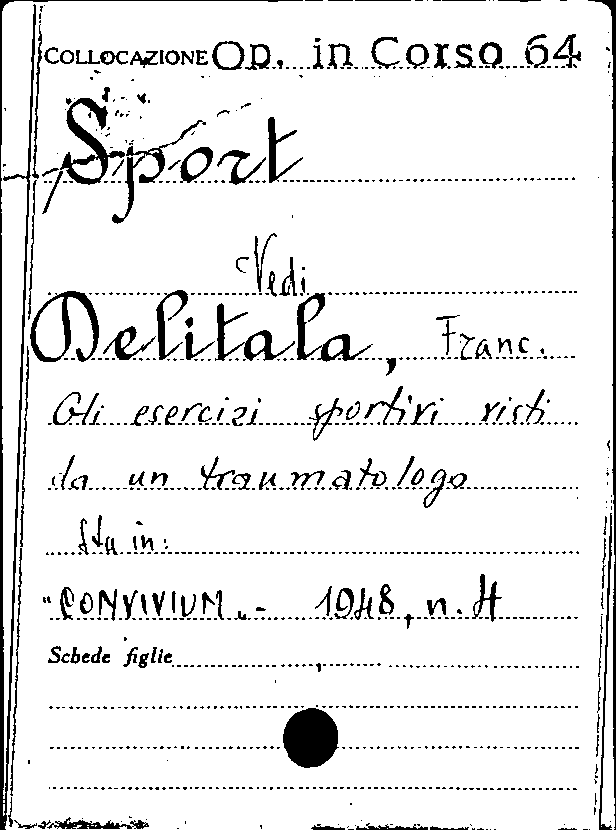 COLLOCAZIONE Op. in Corso 64
Sport
Vedi
Delitala, Franc.
Gli esercizi sportivi visti
da un traumatologo
Sta in:
"CONVIVIUM„ - 1948, n. 4
Schede figlie